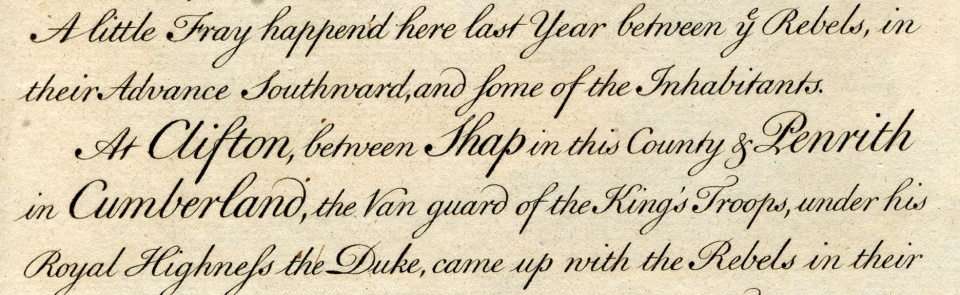 A little Fray happen'd here last Year between yͤ Rebels, in
their Advance Southward, and ſome of the Inhabitants.
At Clifton, between Shap in this County & Penrith
in Cumberland, the Van guard of the King's Troops, under his
Royal Highneſs the Duke, came up with the Rebels in their